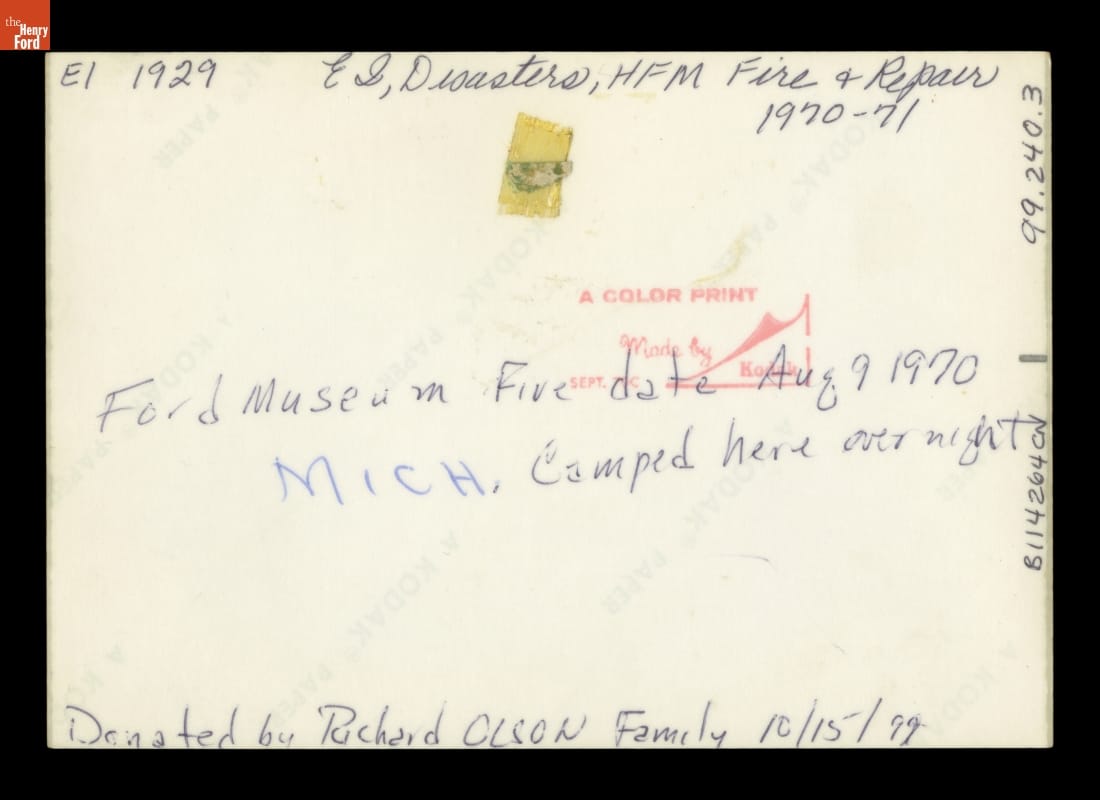 the
Henry
Ford
EI 1929 EI, Disasters, HFM Fire & Repair
1970-71
99.240.3
A COLOR PRINT
Made by
Kodak
SEPT. 70C
Ford Museum Fire date Aug 9 1970
MICH. Camped here overnight
B114264CN
A KODAK PAPER
Donated by Richard OLSON Family 10/15/99